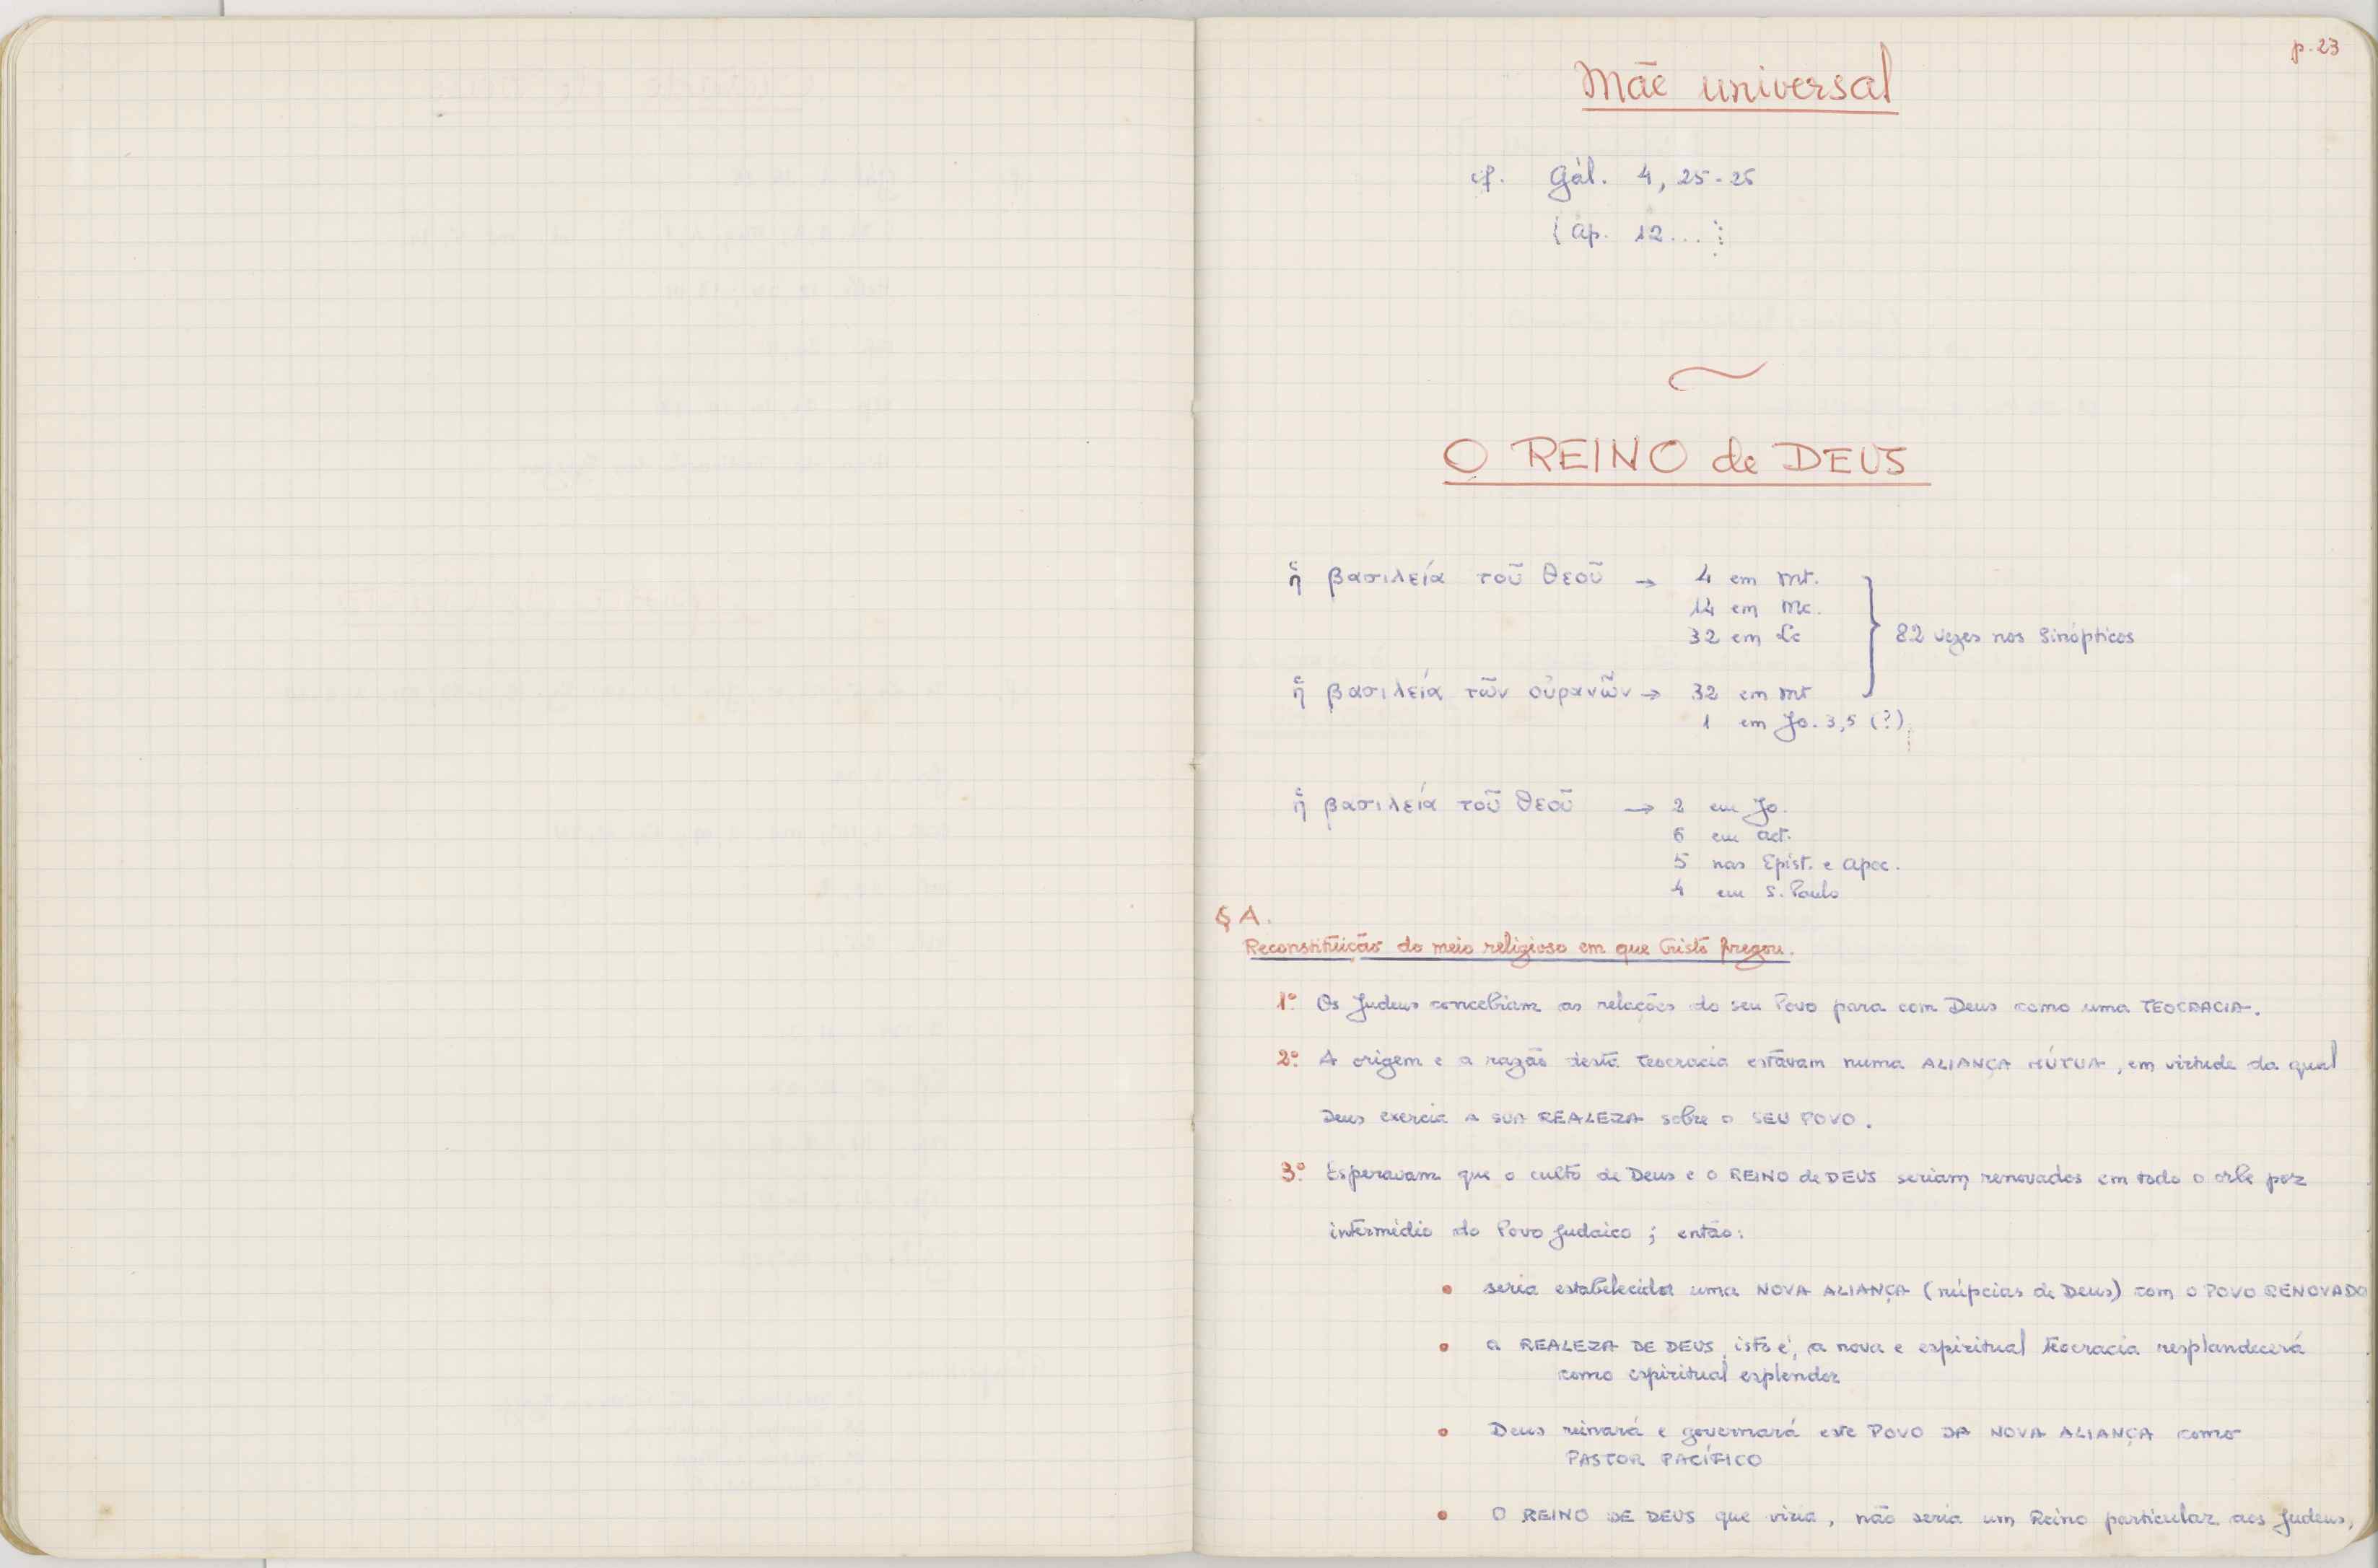 p. 23
Mãe universal
cf. Gál. 4, 25-26
(Ap. 12...
O REINO de DEUS
ἡ βασιλεία τοῦ θεοῦ → 4 em Mt.
14 em Mc.
32 em Lc
82 vezes nos Sinópticos
ἡ βασιλεία τῶν οὐρανῶν → 32 em Mt
1 em Jo. 3,5 (?)
ἡ βασιλεία τοῦ θεοῦ → 2 em Jo.
6 em Act.
5 nas Epíst. e Apoc.
4 em S. Paulo
§ A.
Reconstituïção do meio religioso em que Cristo pregou.
1º Os Judeus concebiam as relações do seu Povo para com Deus como uma TEOCRACIA.
2º A origem e a razão desta teocracia estavam numa ALIANÇA MÚTUA, em virtude da qual
Deus exercia a SUA REALEZA sobre o SEU POVO.
3º Esperavam que o culto de Deus e o REINO de DEUS seriam renovados em todo o orbe por
intermédio do Povo Judaico ; então:
• seria estabelecida uma NOVA ALIANÇA (núpcias de Deus) com o POVO RENOVADO
• a REALEZA DE DEUS, isto é, a nova e espiritual teocracia resplandecerá
como espiritual esplendor
• Deus reinará e governará este POVO DA NOVA ALIANÇA como
PASTOR PACÍFICO
• O REINO DE DEUS que viria, não seria um Reino particular aos Judeus,